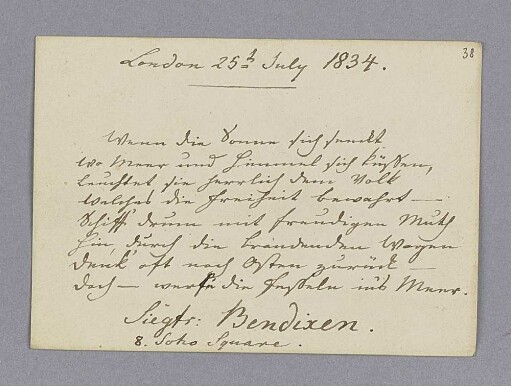 38
London 25th July 1834.
Wenn die Sonne sich senkt
wo Meer und Himmel sich küssen,
leuchtet sie herrlich dem Volk
welches die Freiheit bewahrt —
Schiff' drum mit freudigen Muth
hin, durch die brandenden Wogen
denk' oft nach Osten zurück —
doch — werfe die Fesseln in's Meer.
Siegfr: Bendixen.
8. Soho Square.